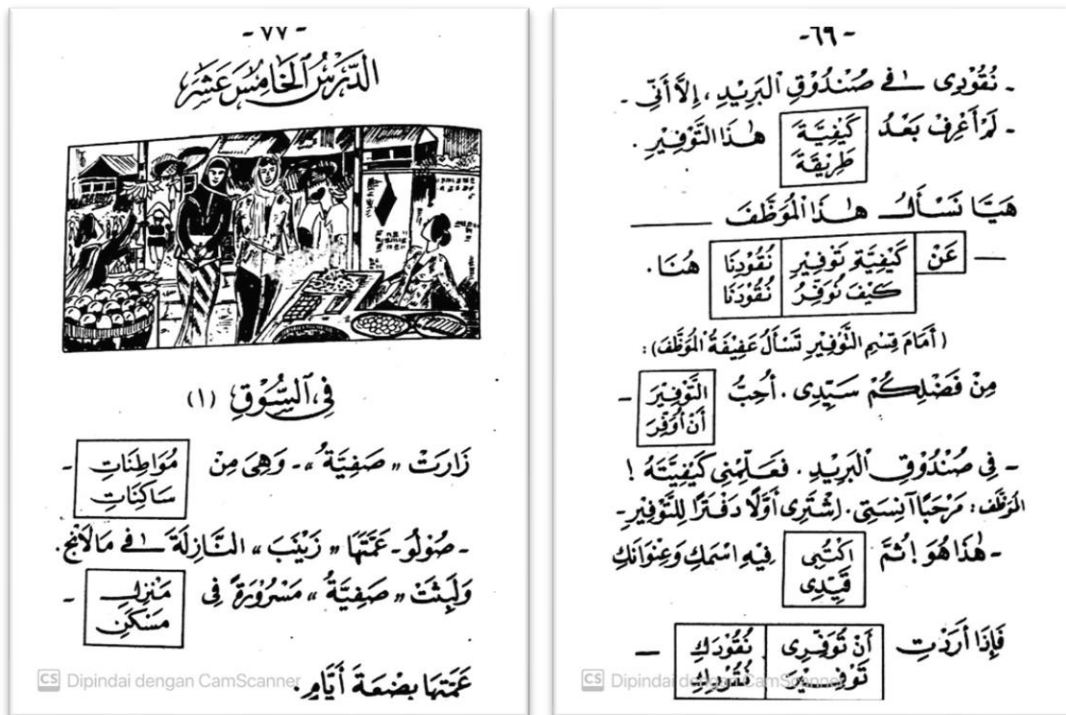 -٦٩-
- نُقُوْدِى فِى صُنْدُوْقِ الْبَرِيْدِ، إِلَّا أَنِّى -
- لَمْ أَعْرِفْ بَعْدُ كَيْفِيَّةَ هٰذَا التَّوْفِيْرِ.
طَرِيْقَةَ
هَيَّا نَسْأَلُ هٰذَا الْمُوَظَّفَ
— عَنْ كَيْفِيَّةِ تَوْفِيْرِ نُقُوْدِنَا هُنَا.
كَيْفَ نُوَفِّرُ نُقُوْدَنَا
(أَمَامَ قِسْمِ التَّوْفِيْرِ تَسْأَلُ عَفِيْفَةُ الْمُوَظَّفَ):
مِنْ فَضْلِكُمْ سَيِّدِى. أُحِبُّ التَّوْفِيْرَ -
أَنْ أُوَفِّرَ
- فِى صُنْدُوْقِ الْبَرِيْدِ. فَعَلِّمْنِى كَيْفِيَّتَهُ!
الْمُوَظَّف: مَرْحَبًا آنِسَتِى. اِشْتَرِى أَوَّلًا دَفْتَرًا لِلتَّوْفِيْرِ-
- هٰذَا هُوَ! ثُمَّ اكْتُبِى فِيْهِ اسْمَكِ وَعِنْوَانَكِ
قَيِّدِى
فَإِذَا أَرَدْتِ أَنْ تُوَفِّرِى نُقُوْدَكِ —
تَوْفِيْرَ نُقُوْدِكِ
CS Dipindai dengan CamScanner
- ٧٧ -
الدَّرْسُ الْخَامِسَ عَشَرَ
فِى السُّوْقِ (١)
زَارَتْ «صَفِيَّةُ» - وَهِىَ مِنْ مُوَاطِنَاتِ -
سَاكِنَاتِ
- صُوْلُو - عَمَّتَهَا «زَيْنَبَ» النَّازِلَةَ فِى مَالَانْج.
وَلَبِثَتْ «صَفِيَّةُ» مَسْرُوْرَةً فِى مَنْزِلِ -
مَسْكَنِ
عَمَّتِهَا بِضْعَةَ أَيَّامٍ.
CS Dipindai dengan CamScanner